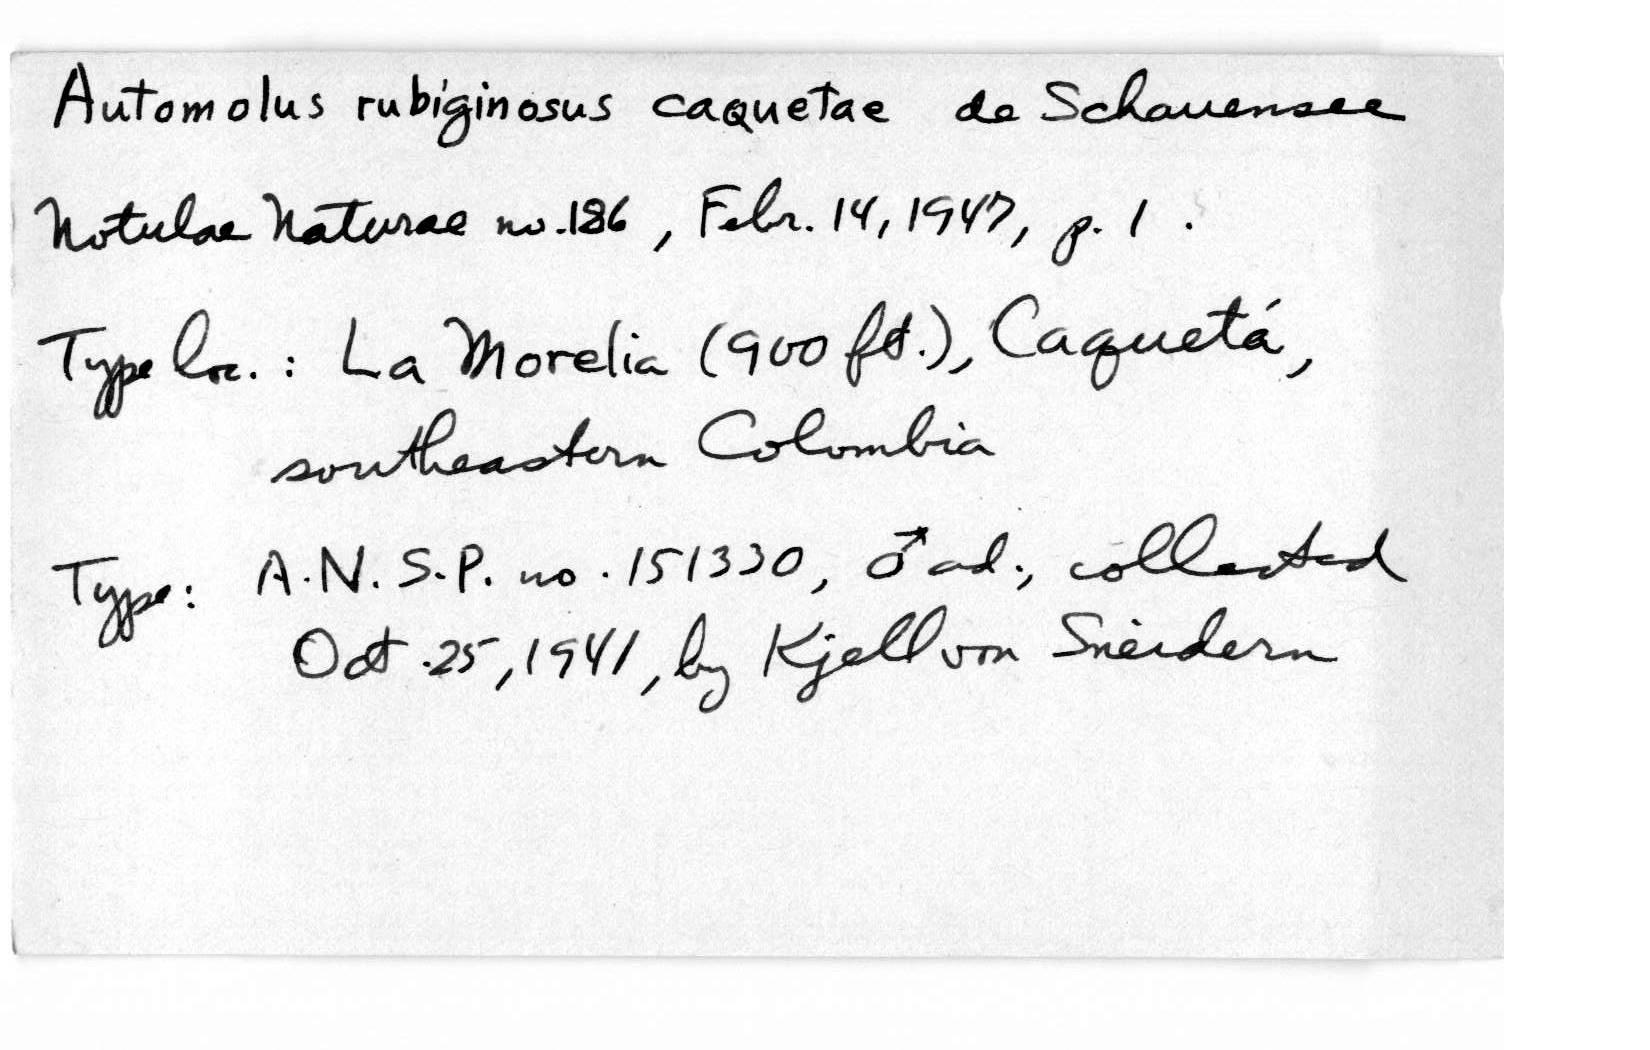 Automolus rubiginosus caquetae de Schauensee
Notulae Naturae no. 186, Febr. 14, 1947, p. 1.
Type loc.: La Morelia (900 ft.), Caquetá,
southeastern Colombia
Type: A.N.S.P. no. 151330, ♂ ad., collected
Oct. 25, 1941, by Kjell von Sneidern